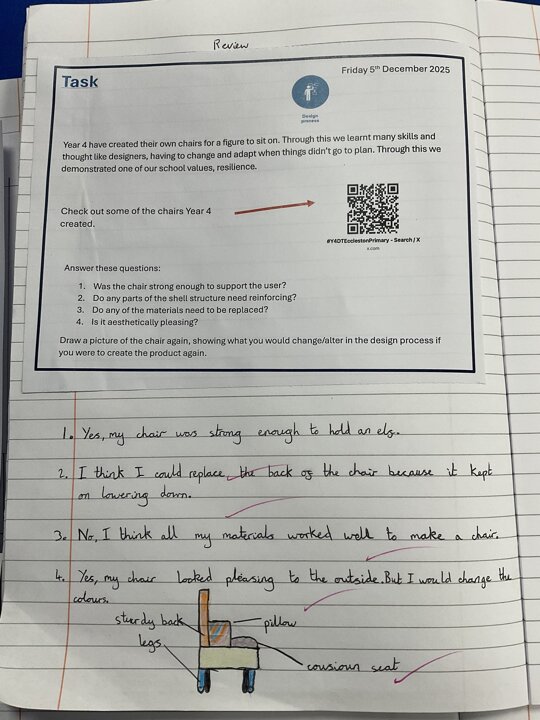 Review
Task
Friday 5th December 2025
Design
process
Year 4 have created their own chairs for a figure to sit on. Through this we learnt many skills and
thought like designers, having to change and adapt when things didn't go to plan. Through this we
demonstrated one of our school values, resilience.
Check out some of the chairs Year 4
created.
#Y4DTEcclestonPrimary - Search / X
x.com
Answer these questions:
1. Was the chair strong enough to support the user?
2. Do any parts of the shell structure need reinforcing?
3. Do any of the materials need to be replaced?
4. Is it aesthetically pleasing?
Draw a picture of the chair again, showing what you would change/alter in the design process if
you were to create the product again.
1. Yes, my chair was strong enough to hold an elf.
2. I think I could replace the back of the chair because it kept
on lowering down.
3. No, I think all my materials worked well to make a chair.
4. Yes, my chair looked pleasing to the outside. But I would change the
colours.
sturdy back
pillow
legs
cousioun seat